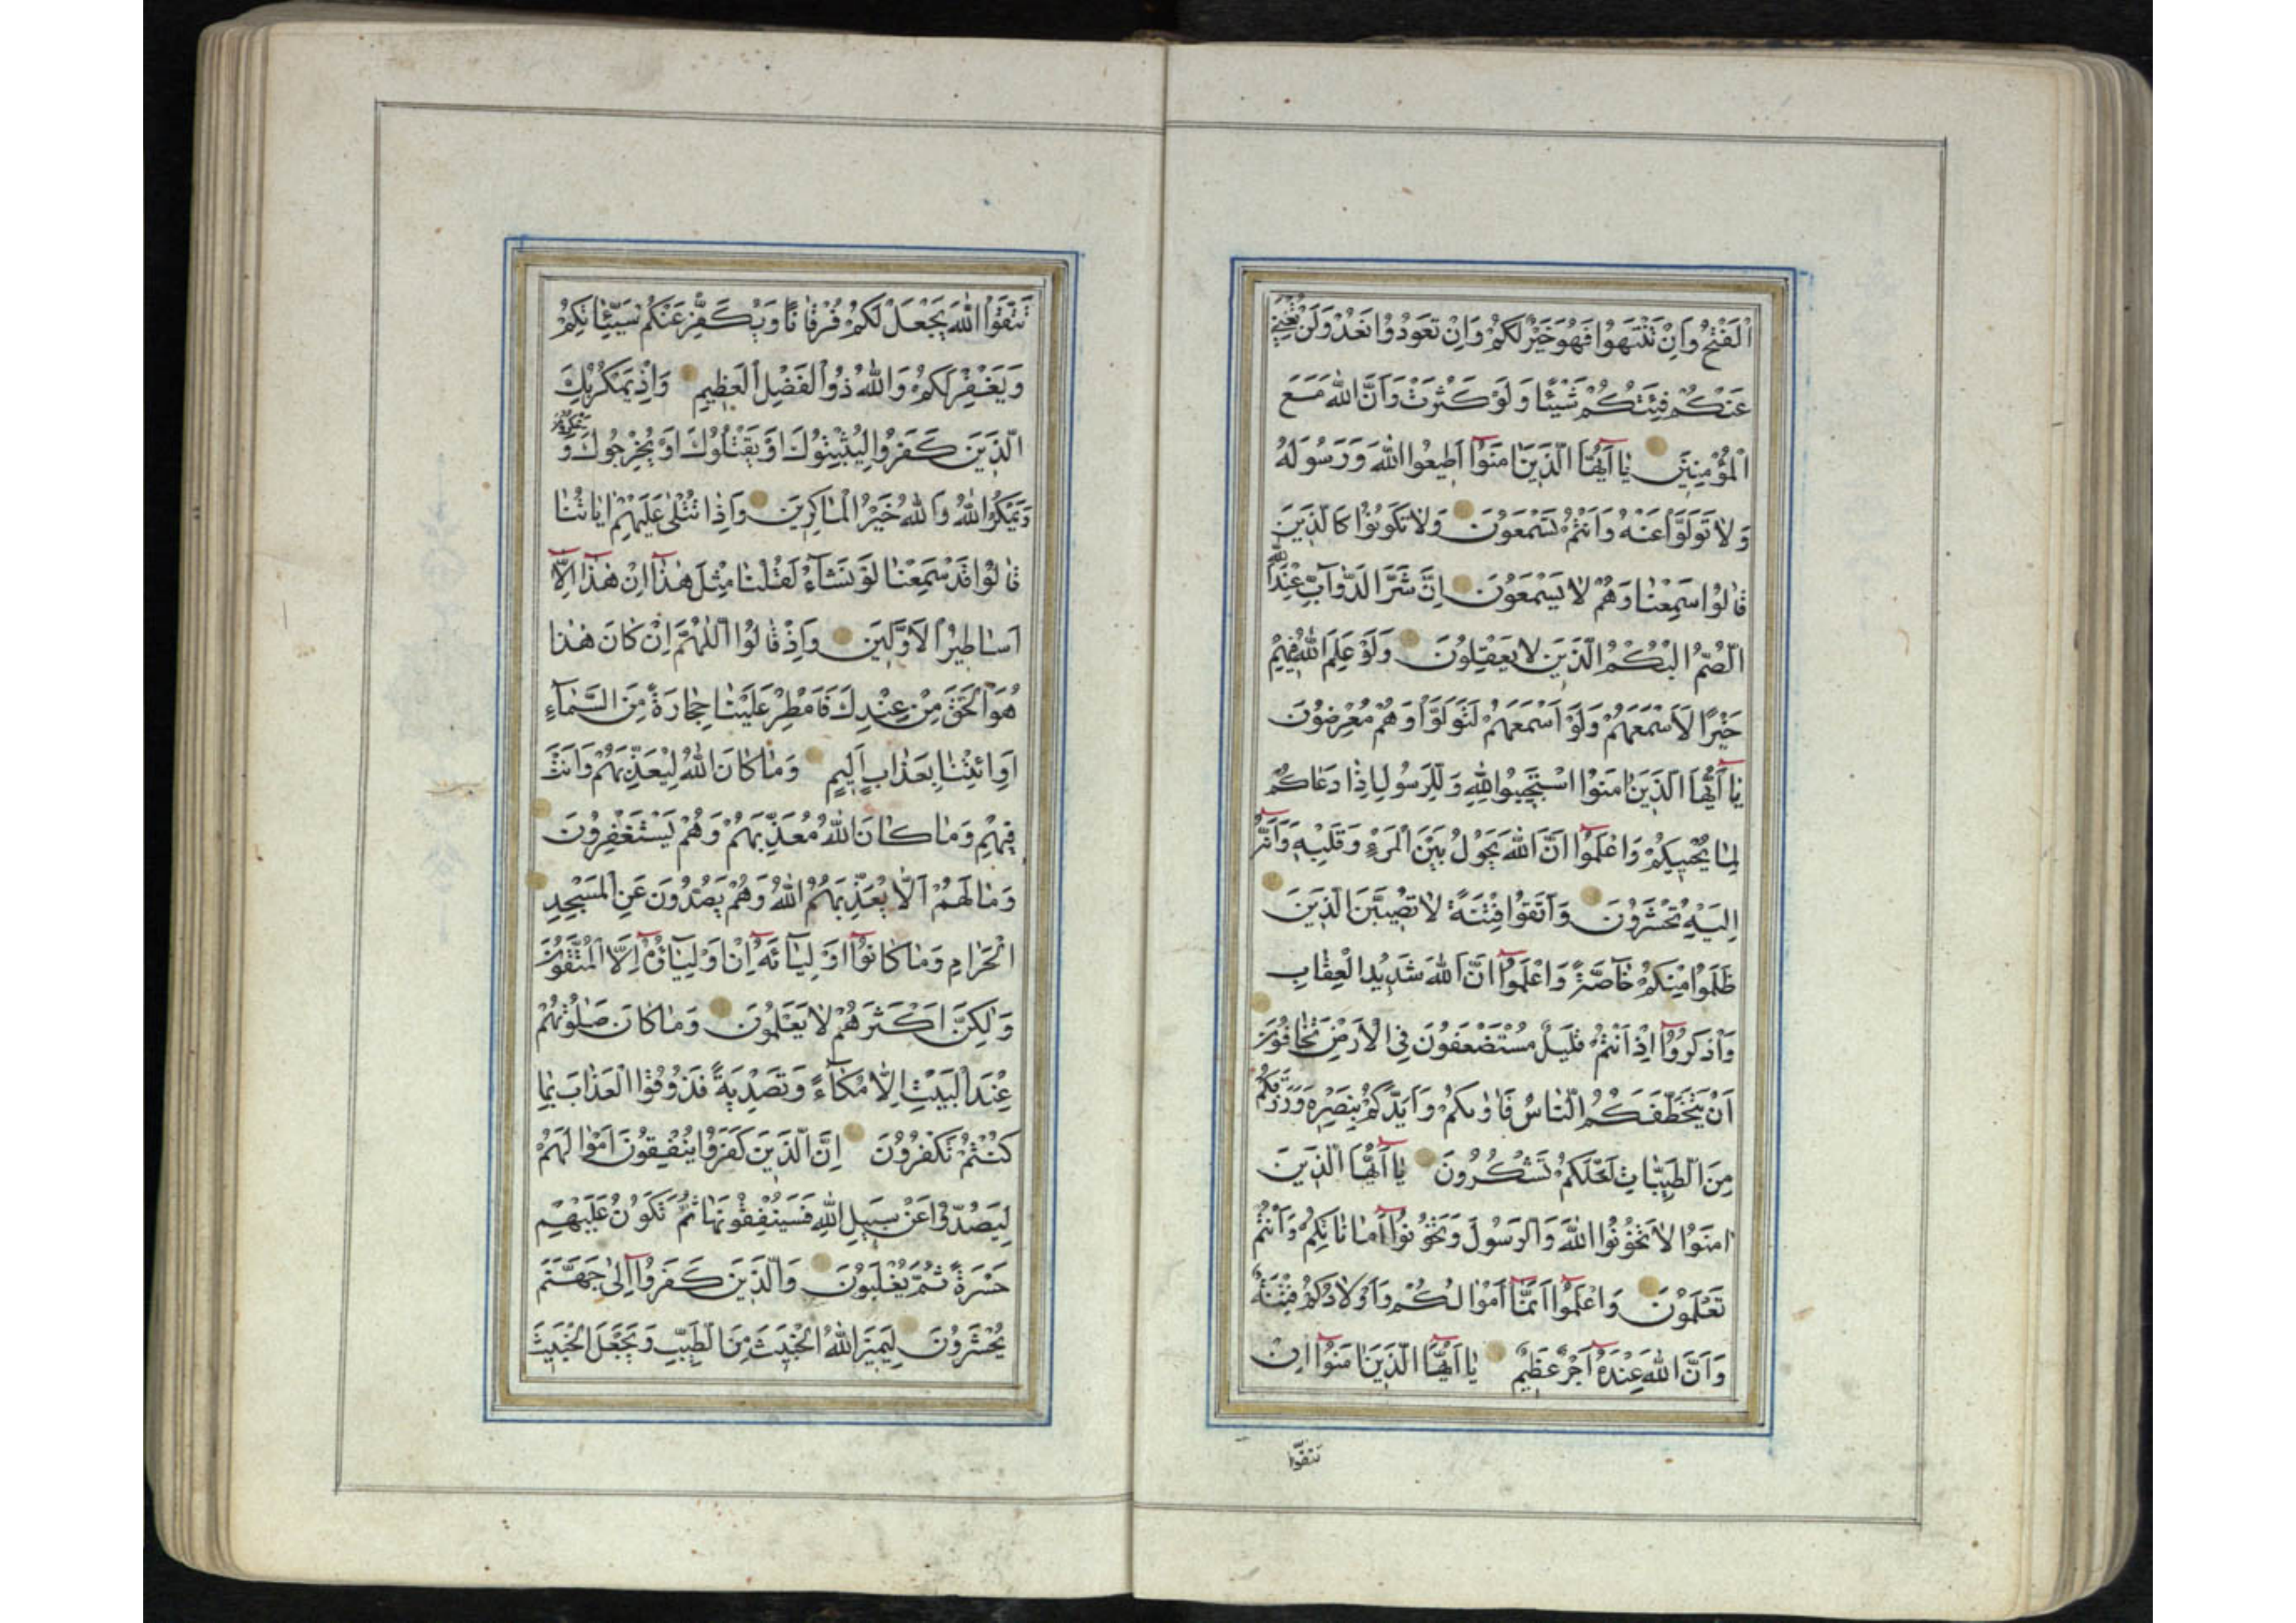 اَلْفَتْحُ وَاِنْ تَنْتَهُوا فَهُوَ خَيْرٌ لَكُمْ وَاِنْ تَعُودُوا نَعُدْ وَلَنْ تُغْنِيَ
عَنْكُمْ فِئَتُكُمْ شَيْئًا وَلَوْ كَثُرَتْ وَاَنَّ اللّٰهَ مَعَ
الْمُؤْمِنِينَ يٰا اَيُّهَا الَّذِينَ اٰمَنُوا اَطِيعُوا اللّٰهَ وَرَسُولَهُ
وَلٰا تَوَلَّوْا عَنْهُ وَاَنْتُمْ تَسْمَعُونَ وَلٰا تَكُونُوا كَالَّذِينَ
قٰالُوا سَمِعْنٰا وَهُمْ لٰا يَسْمَعُونَ اِنَّ شَرَّ الدَّوٰآبِّ عِنْدَ اللّٰهِ
الصُّمُّ الْبُكْمُ الَّذِينَ لٰا يَعْقِلُونَ وَلَوْ عَلِمَ اللّٰهُ فِيهِمْ
خَيْرًا لَاَسْمَعَهُمْ وَلَوْ اَسْمَعَهُمْ لَتَوَلَّوْا وَهُمْ مُعْرِضُونَ
يٰا اَيُّهَا الَّذِينَ اٰمَنُوا اسْتَجِيبُوا لِلّٰهِ وَلِلرَّسُولِ اِذٰا دَعٰاكُمْ
لِمٰا يُحْيِيكُمْ وَاعْلَمُوا اَنَّ اللّٰهَ يَحُولُ بَيْنَ الْمَرْءِ وَقَلْبِهِ وَاَنَّهُ
اِلَيْهِ تُحْشَرُونَ وَاتَّقُوا فِتْنَةً لٰا تُصِيبَنَّ الَّذِينَ
ظَلَمُوا مِنْكُمْ خٰآصَّةً وَاعْلَمُوا اَنَّ اللّٰهَ شَدِيدُ الْعِقٰابِ
وَاذْكُرُوا اِذْ اَنْتُمْ قَلِيلٌ مُسْتَضْعَفُونَ فِي الْاَرْضِ تَخٰافُونَ
اَنْ يَتَخَطَّفَكُمُ النّٰاسُ فَاٰوٰىكُمْ وَاَيَّدَكُمْ بِنَصْرِهِ وَرَزَقَكُمْ
مِنَ الطَّيِّبٰاتِ لَعَلَّكُمْ تَشْكُرُونَ يٰا اَيُّهَا الَّذِينَ
اٰمَنُوا لٰا تَخُونُوا اللّٰهَ وَالرَّسُولَ وَتَخُونُوا اَمٰانٰاتِكُمْ وَاَنْتُمْ
تَعْلَمُونَ وَاعْلَمُوا اَنَّمٰا اَمْوٰالُكُمْ وَاَوْلٰادُكُمْ فِتْنَةٌ
وَاَنَّ اللّٰهَ عِنْدَهُ اَجْرٌ عَظِيمٌ يٰا اَيُّهَا الَّذِينَ اٰمَنُوا اِنْ
تَتَّقُوا
تَتَّقُوا اللّٰهَ يَجْعَلْ لَكُمْ فُرْقٰانًا وَيُكَفِّرْ عَنْكُمْ سَيِّئٰاتِكُمْ
وَيَغْفِرْ لَكُمْ وَاللّٰهُ ذُو الْفَضْلِ الْعَظِيمِ وَاِذْ يَمْكُرُ بِكَ
الَّذِينَ كَفَرُوا لِيُثْبِتُوكَ اَوْ يَقْتُلُوكَ اَوْ يُخْرِجُوكَ وَ يَمْكُرُونَ
وَيَمْكُرُ اللّٰهُ وَاللّٰهُ خَيْرُ الْمٰاكِرِينَ وَاِذٰا تُتْلٰى عَلَيْهِمْ اٰيٰاتُنٰا
قٰالُوا قَدْ سَمِعْنٰا لَوْ نَشٰآءُ لَقُلْنٰا مِثْلَ هٰذٰا اِنْ هٰذٰا اِلّٰا
اَسٰاطِيرُ الْاَوَّلِينَ وَاِذْ قٰالُوا اللّٰهُمَّ اِنْ كٰانَ هٰذٰا
هُوَ الْحَقَّ مِنْ عِنْدِكَ فَاَمْطِرْ عَلَيْنٰا حِجٰارَةً مِنَ السَّمٰآءِ
اَوِ ائْتِنٰا بِعَذٰابٍ اَلِيمٍ وَمٰا كٰانَ اللّٰهُ لِيُعَذِّبَهُمْ وَاَنْتَ
فِيهِمْ وَمٰا كٰانَ اللّٰهُ مُعَذِّبَهُمْ وَهُمْ يَسْتَغْفِرُونَ
وَمٰا لَهُمْ اَلّٰا يُعَذِّبَهُمُ اللّٰهُ وَهُمْ يَصُدُّونَ عَنِ الْمَسْجِدِ
الْحَرٰامِ وَمٰا كٰانُوا اَوْلِيٰآئَهُ اِنْ اَوْلِيٰآؤُهُ اِلَّا الْمُتَّقُونَ
وَلٰكِنَّ اَكْثَرَهُمْ لٰا يَعْلَمُونَ وَمٰا كٰانَ صَلٰوتُهُمْ
عِنْدَ الْبَيْتِ اِلّٰا مُكٰآءً وَتَصْدِيَةً فَذُوقُوا الْعَذٰابَ بِمٰا
كُنْتُمْ تَكْفُرُونَ اِنَّ الَّذِينَ كَفَرُوا يُنْفِقُونَ اَمْوٰالَهُمْ
لِيَصُدُّوا عَنْ سَبِيلِ اللّٰهِ فَسَيُنْفِقُونَهٰا ثُمَّ تَكُونُ عَلَيْهِمْ
حَسْرَةً ثُمَّ يُغْلَبُونَ وَالَّذِينَ كَفَرُوا اِلٰى جَهَنَّمَ
يُحْشَرُونَ لِيَمِيزَ اللّٰهُ الْخَبِيثَ مِنَ الطَّيِّبِ وَيَجْعَلَ الْخَبِيثَ